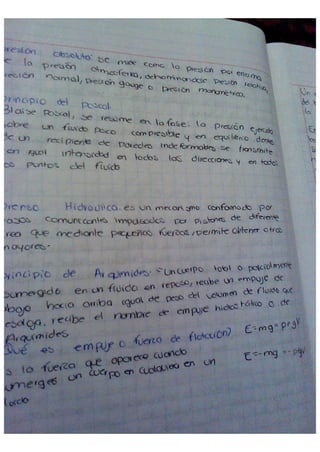 presión absoluta: se mide como la presión por encima
de la presión atmosferica, denominandose presión relativa,
presión normal, presión gauge o presión manometrica.
principio del pascal
Blaise Pascal, se resume en la fase: la presión ejercida
sobre un fluido poco compresible y en equilibrio dentro
de un recipiente de paredes indeformables se transmite
en igual intensidad en todas las direcciones y en todos
os puntos del fluido
prensa Hidraulica. es un mecanismo conformado por
vasos comunicantes impulsados por pistones de diferente
rea que mediante pequeñas fuerzas, permite obtener otras
mayores.
principio de Arquimides: "un cuerpo total o parcialmente
sumergido en un fluido en reposo, recibe un empuje de
abajo hacia arriba igual de peso del volumen de fluido que
esaloja. recibe el nombre de empuje hidrostático o de
Arquimides
Qué es empuje o fuerza de flotación) E=mg=ρfgV
s la fuerza que aparece cuando
umerges un cuerpo en cualquiera en un E=-mg=-ρgV
luido